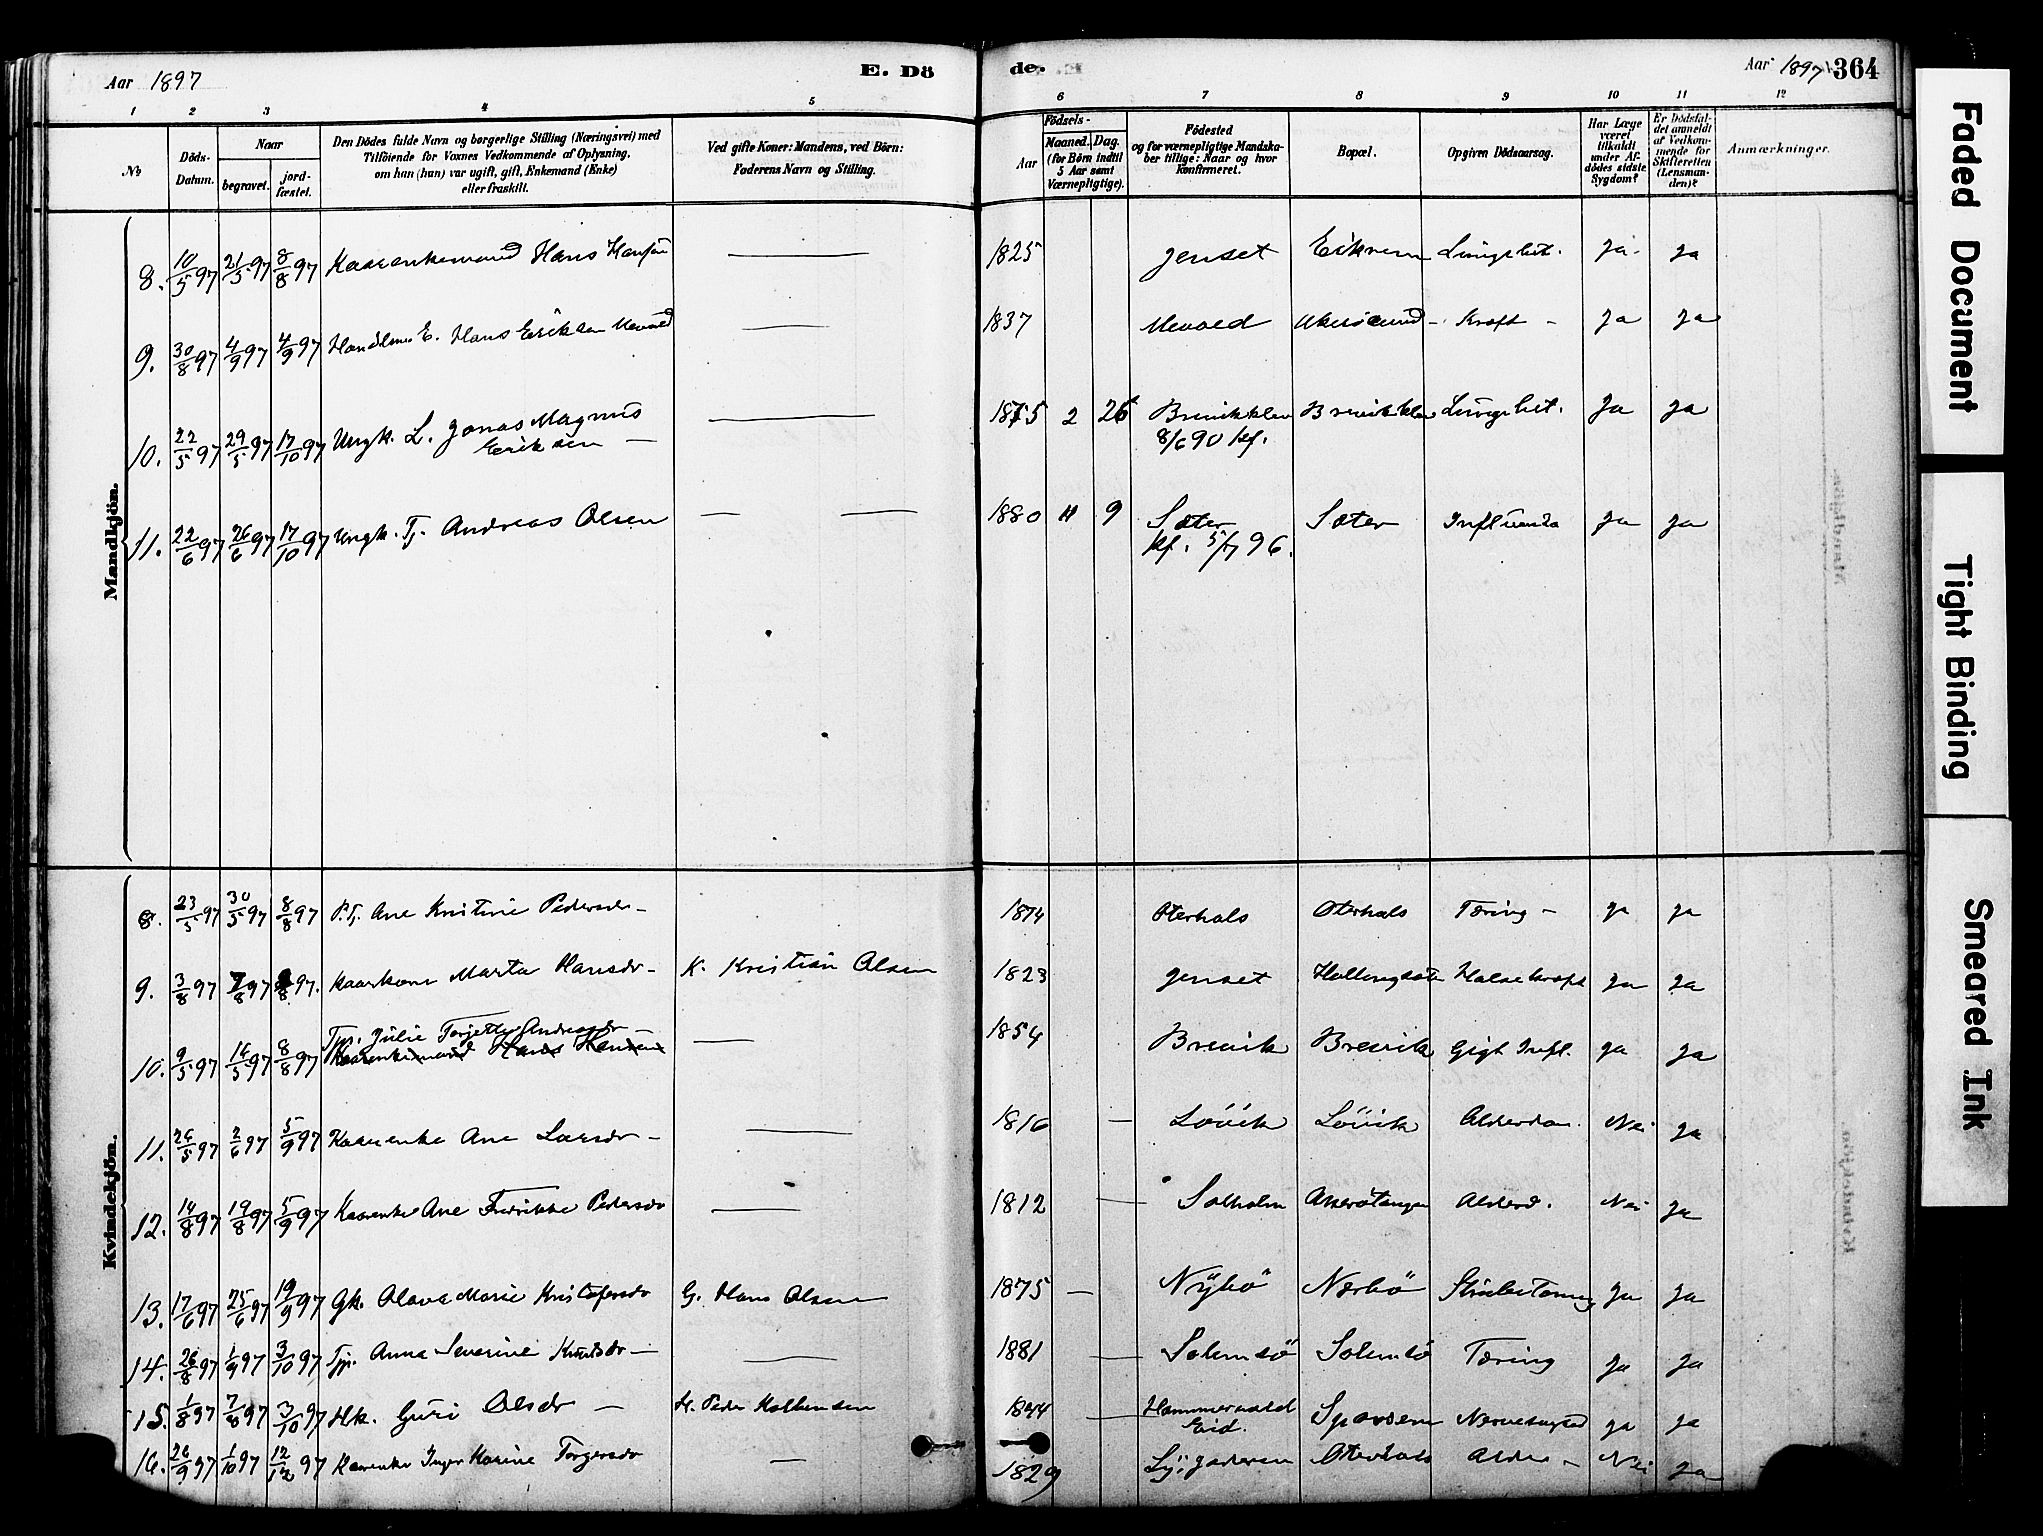 Aar 1897
E. Dö
de.
Aar 1897
364
1 2 3 4 5 6 7 8 9 10 11 12
No
Döds-Datum.
Naar
begravet.
jordfæstet.
Den Dödes fulde Navn og borgerlige Stilling (Næringsvei) med
Tilföiende for Voxnes Vedkommende af Oplysning,
om han (hun) var ugift, gift, Enkemand (Enke)
eller fraskilt.
Ved gifte Koner: Mandens, ved Börn:
Faderens Navn og Stilling.
Födsels-
Aar
Maaned. Dag.
(for Börn indtil
5 Aar samt
Værnepligtige).
Födested
og for værnepligtige Mandskaber tillige: Naar og hvor
konfirmeret.
Bopæl.
Opgiven Dödsaarsag.
Har Læge
været
tilkaldt
under Afdödes sidste
Sygdom?
Er Dödsfaldet anmeldt
af Vedkommende for
Skifteretten
(Lensmanden)?
Anmærkninger.
Mandkjön.
8. 10/5 97 21/5 97 8/8 97 Kaarenkemand Hans Hansen — 1825 Jenset Eikrem Lungebet. Ja Ja
9. 30/8 97 4/9 97 4/9 97 Hans Eriksen — 1837 Kræft — Ja Ja
10. 22/5 97 29/5 97 17/10 97 Ungk. L. Jonas Magnus
Eriksen — 1875 2 26 Brevikklev Brevikklev Lungebet. Ja Ja
8/6 90 kf.
11. 22/6 97 26/6 97 17/10 97 Ungk. Tj. Andreas Olsen — — 1880 4 9 Sæter Sæter Influenza Ja Ja
kf. 5/7 96.
Kvindekjön.
8. 23/5 97 30/5 97 8/8 97 P. Tj. Ane Kristine Pedersdr — 1874 Oterhals Oterhals Tæring — Ja Ja
9. 3/8 97 7/8 97 8/8 97. Kaarkone Marta Hansdr — K. Kristian Olsen 1823 Jenset Ja Ja
10. 9/5 97 14/5 97 8/8 97 Tjp. Julie Torjette Andreasdr
Kaarenkemand Hans Hansen — 1854 Brevik Brevik Gigt Infl. Ja Ja
11. 26/5 97 2/6 97 5/9 97 Kaarenke Ane Larsdr — — 1816 — Lövik Lövik Alderdom. Nei Ja
12. 14/8 97 19/8 97 5/9 97 Kaarenke Ane Fredrikke Pedersdr — 1812 — Solholm Akerötangen Alderd. Nei Ja
13. 17/6 97 25/6 97 19/9 97 Gk. Olava Marie Kristofersdr G. Hans Olsen 1875 — Nybö Nerbö Ja Ja
14. 26/8 97 1/9 97 3/10 97 Tjp. Anna Severine Knutsdr — — 1881 — Solemsö Solemsö Tæring Ja Ja
15. 1/8 97 7/8 97 3/10 97 Hk. Guri Olsdr — H. Peder Kolbensen 1844 — Hammervold
Eid. Ja Ja
16. 26/9 97 1/10 97 12/12 97 Kaarenke Inger Karine Torgersdr — 1829 Oterhals Alder — Nei Ja
Faded Document
Tight Binding
Smeared Ink